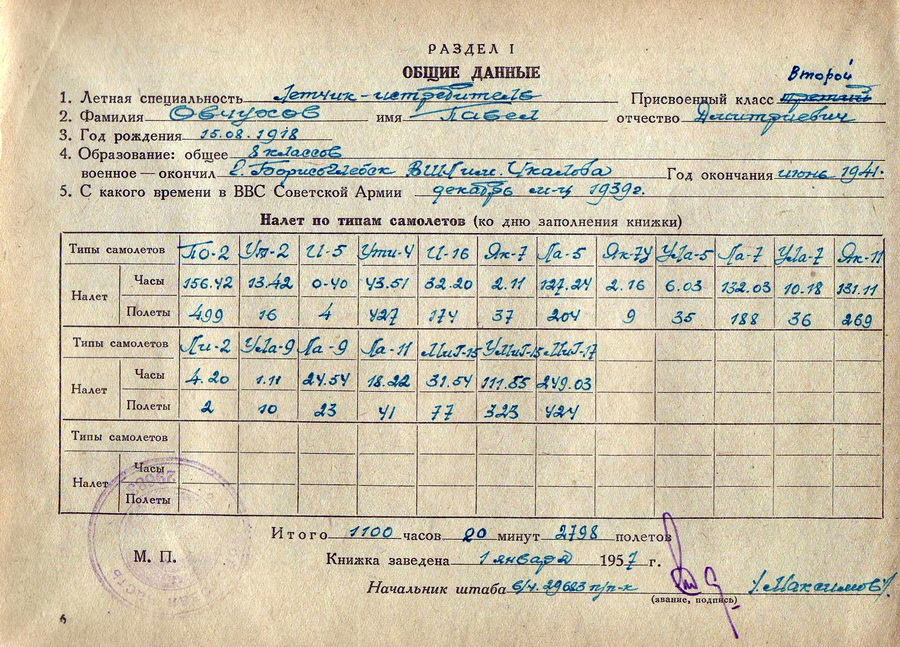 РАЗДЕЛ I
ОБЩИЕ ДАННЫЕ
Второй
1. Летная специальность Летчик-истребитель Присвоенный класс третий
2. Фамилия имя Павел отчество Дмитриевич
3. Год рождения 15.08.1918
4. Образование: общее 8 классов
военное — окончил Борисоглебск ВШП им. Чкалова Год окончания июнь 1941.
5. С какого времени в ВВС Советской Армии декабрь м-ц 1939г.
Налет по типам самолетов (ко дню заполнения книжки)
Типы самолетов По-2 Ут-2 И-5 Ути-4 И-16 Як-7 Ла-5 Як-7У УЛа-5 Ла-7 УЛа-7 Як-11
Налет Часы 156.42 13.42 0-40 43.51 32.20 2.11 127.24 2.16 6.03 132.03 10.18 131.11
Полеты 499 16 4 427 174 37 204 9 35 188 36 269
Типы самолетов Ли-2 УЛа-9 Ла-9 Ла-11 МиГ-15 УМиГ-15 МиГ-17
Налет Часы 4.20 1.11 24.54 18.22 31.54 111.55 249.03
Полеты 2 10 23 41 77 323 424
Типы самолетов
Налет Часы
Полеты
Итого 1100 часов 20 минут 2798 полетов
М. П. Книжка заведена 1 января 1957 г.
Начальник штаба в/ч 29623 п/п-к /Максимов/
(звание, подпись)
6